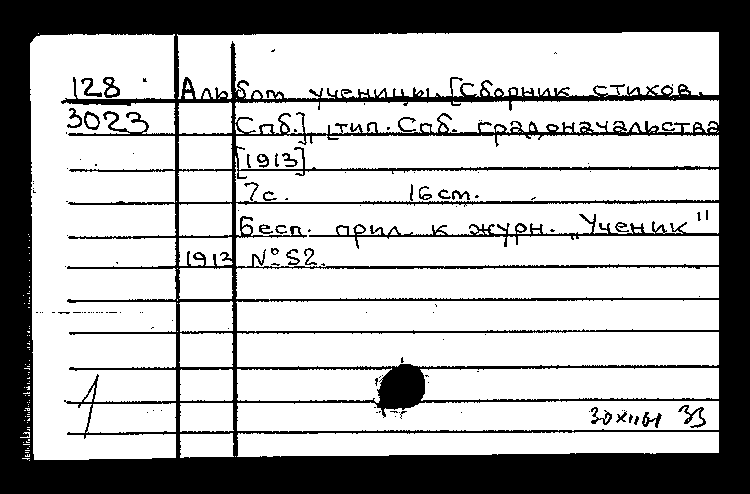 128 Альбом ученицы. [Сборник стихов.
3023 Спб.], [тип. Спб. градоначальства
[1913].
7с. 16 см.
Бесп. прил. к журн. „Ученик"
1913 № 52.
1 30 XII 61 ЗЗ